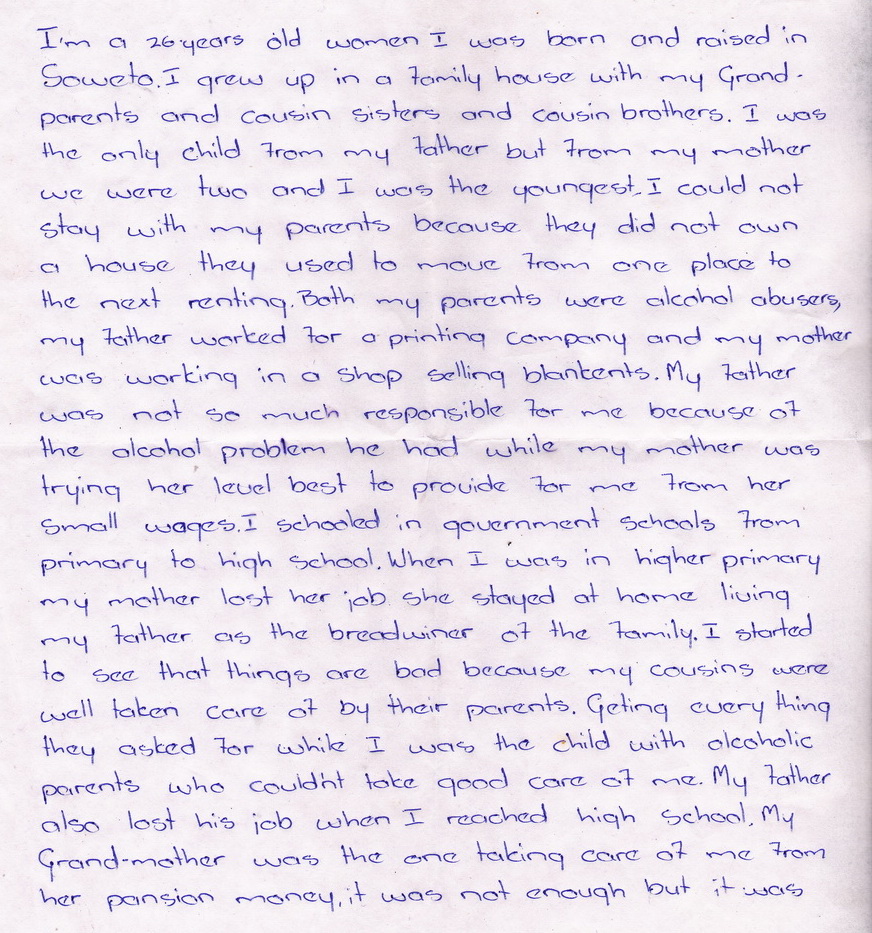 I'm a 26 years old women I was born and raised in
Soweto. I grew up in a family house with my Grand-
parents and cousin sisters and cousin brothers. I was
the only child from my father but from my mother
we were two and I was the youngest. I could not
stay with my parents because they did not own
a house they used to move from one place to
the next renting. Both my parents were alcohol abusers,
my father worked for a printing company and my mother
was working in a shop selling blankents. My father
was not so much responsible for me because of
the alcohol problem he had while my mother was
trying her level best to provide for me from her
small wages. I schooled in government schools from
primary to high school. When I was in higher primary
my mother lost her job she stayed at home living
my father as the breadwiner of the family. I started
to see that things are bad because my cousins were
well taken care of by their parents. Geting every thing
they asked for while I was the child with alcoholic
parents who could'nt take good care of me. My father
also lost his job when I reached high school. My
Grand-mother was the one taking care of me from
her pansion money, it was not enough but it was